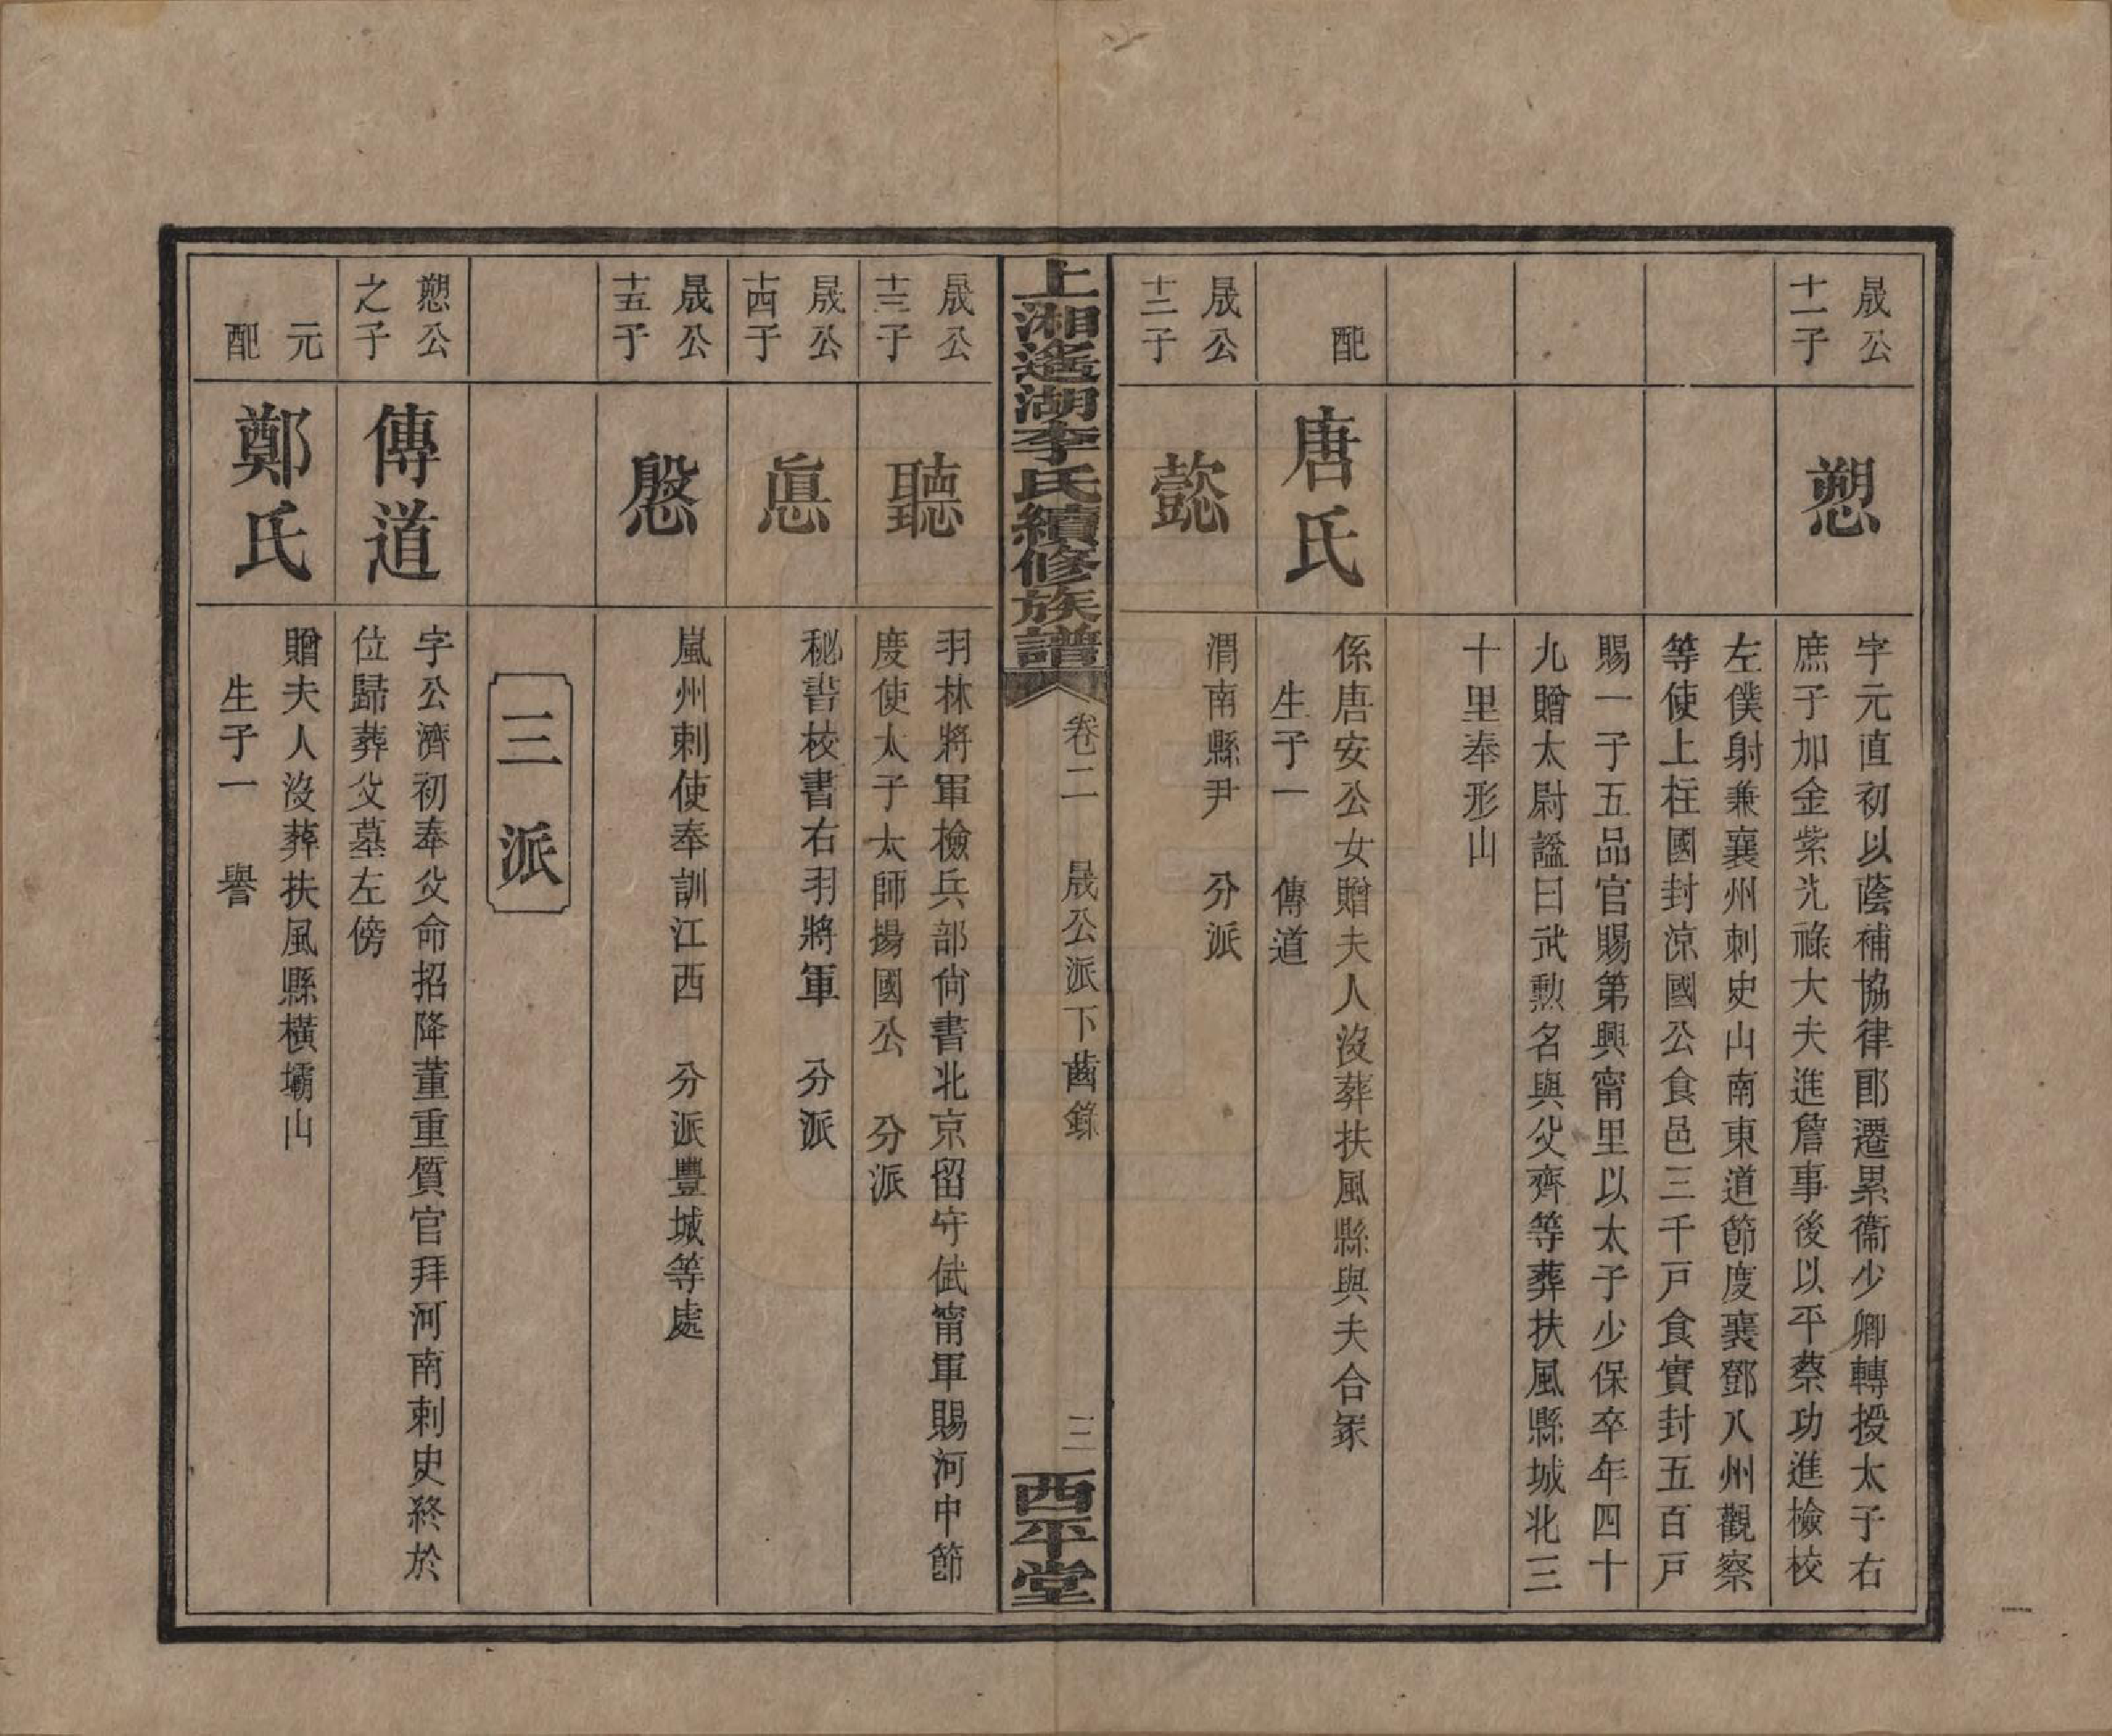 晟公
十一子
愬
字元直初以蔭補協律郎遷累衞少卿轉授太子右
庶子加金紫光祿大夫進詹事後以平蔡功進檢校
左僕射兼襄州刺史山南東道節度襄鄧八州觀察
等使上柱國封涼國公食邑三千戸食實封五百戸
賜一子五品官賜第興甯里以太子少保卒年四十
九贈太尉謚曰武勲名與父齊等葬扶風縣城北三
十里奉形山
配
唐氏
係唐安公女贈夫人沒葬扶風縣與夫合冢
生子一 傳道
晟公
十二子
懿
渭南縣尹 分派
上湘遙湖李氏續修族譜
卷二 晟公派下齒錄
三
西平堂
晟公
十三子
聽
羽林將軍檢兵部尙書北京留守侙甯軍賜河中節
度使太子太師揚國公 分派
晟公
十四子
慐
秘書校書右羽將軍 分派
晟公
十五子
慇
嵐州刺使奉訓江西 分派豐城等處
三派
愬公
之子
傳道
字公濟初奉父命招降董重質官拜河南刺史終於
位歸葬父墓左傍
元
配
鄭氏
贈夫人沒葬扶風縣橫壩山
生子一 譽